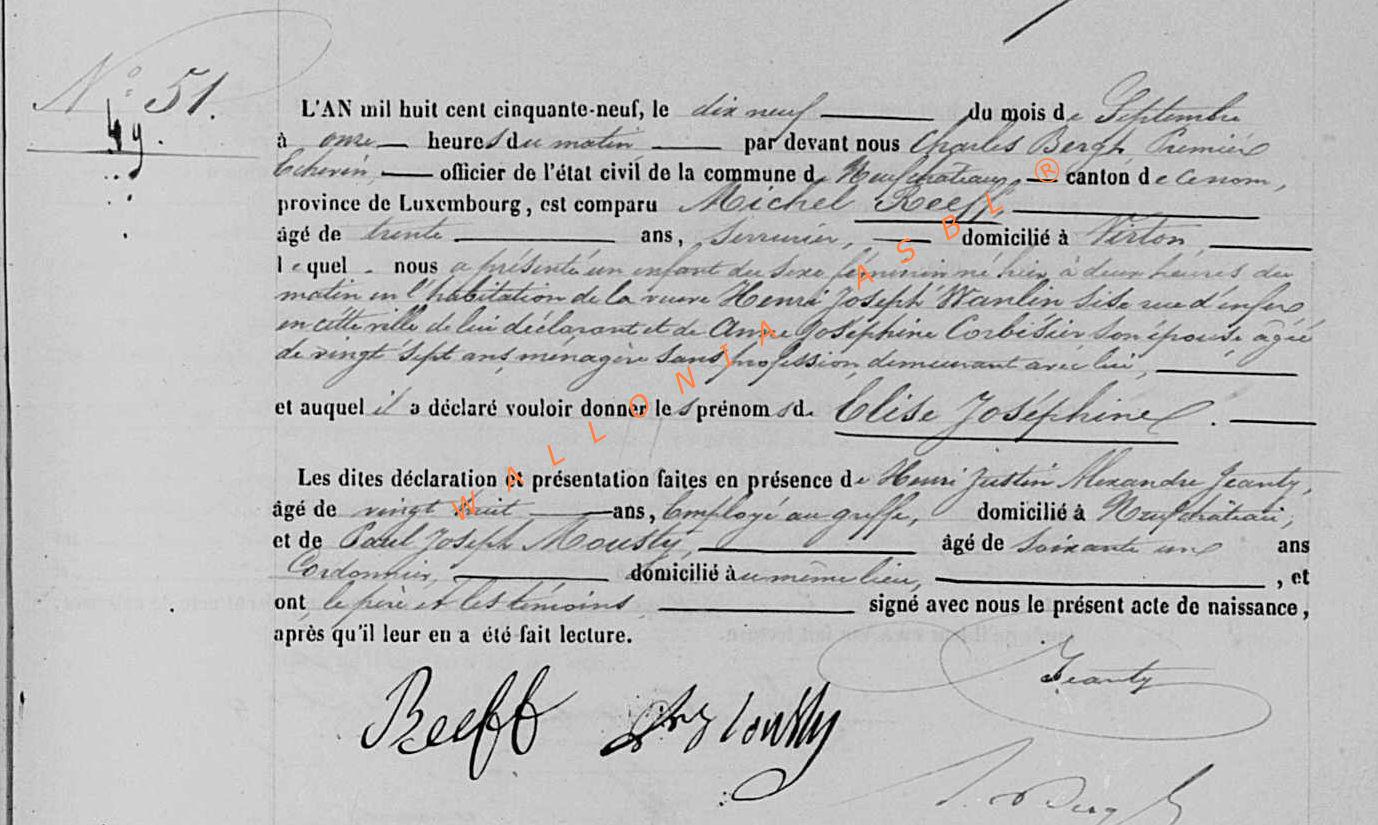 N° 51.
49.
L'AN mil huit cent cinquante-neuf, le dix neuf du mois de Septembre
à onze heures du matin par devant nous Charles Bergh, Premier
Echevin, officier de l'état civil de la commune de Neufchateau, canton de ce nom,
province de Luxembourg, est comparu Michel Reeff,
âgé de trente ans, Serrurier, domicilié à Virton,
lequel nous a présenté un enfant du sexe féminin né hier, à deux heures du
matin en l'habitation de la veuve Henri Joseph Wanlin sise rue d'enfer
en cette ville de lui déclarant et de Anne Joséphine Corbisier son épouse agée
de vingt sept ans, ménagère sans profession, demeurant avec lui,
et auquel il a déclaré vouloir donner les prénoms de Elise Joséphine.
Les dites déclaration et présentation faites en présence de Henri Justin Alexandre Jeanty,
âgé de vingt huit ans, Employé au greffe, domicilié à Neufchâteau,
et de Paul Joseph Mousty, âgé de soixante un ans
Cordonnier, domicilié au même lieu, , et
ont le père et les témoins signé avec nous le présent acte de naissance,
après qu'il leur en a été fait lecture.
Jeanty
Reeff Mousty
WALLONIA ASBL ®